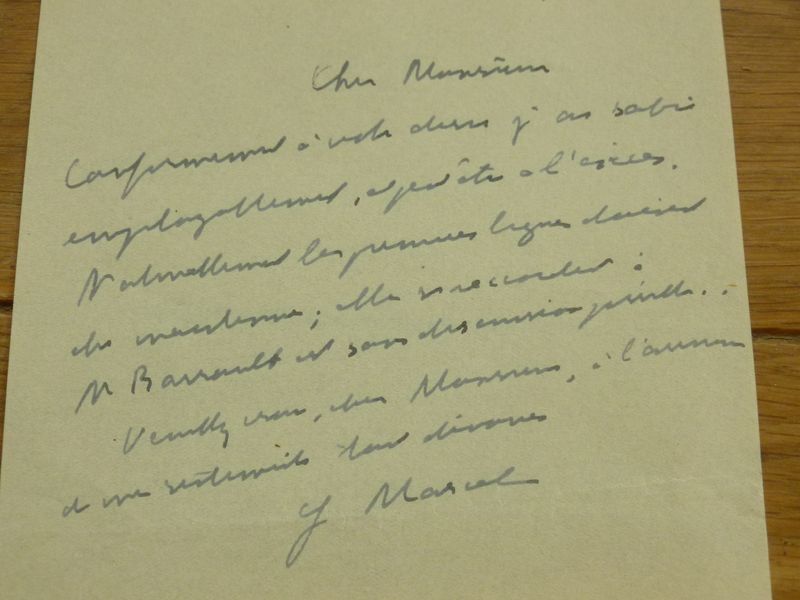 Cher Monsieur
Conformément à votre désir j'ai sabré
impitoyablement, et peut être à l'excès.
Naturellement les premières lignes doivent
être maintenues; elles se raccordent à
M Barrault est sans discussion possible..
Veuillez croire, cher Monsieur, à l'assurance
de mes sentiments tout dévoués
G Marcel